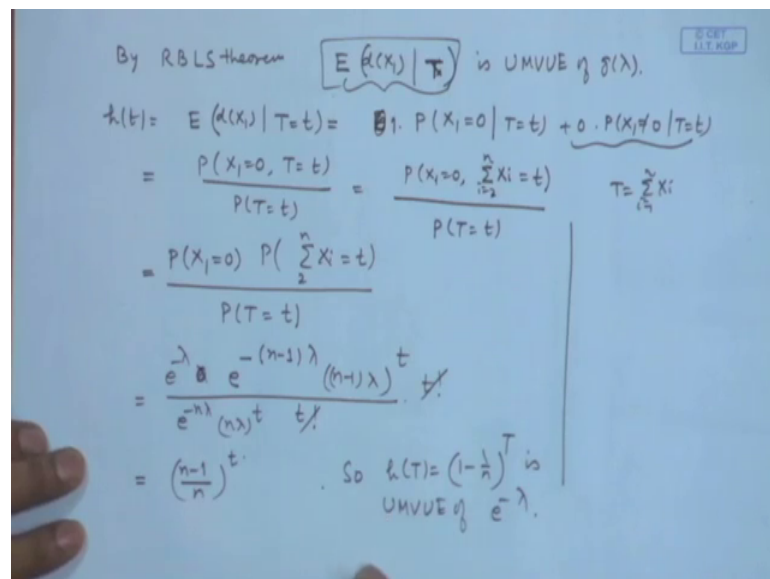 © CET
I.I.T. KGP
By RBLS theorem E(α(X₁) | T) is UMVUE of g(λ).
h(t) = E(α(X₁) | T=t) = 1. P(X₁=0 | T=t) + 0 . P(X₁≠0 | T=t)
= P(X₁=0, T=t) / P(T=t) = P(X₁=0, ∑_{i=2}^{n} Xi = t) / P(T=t) T = ∑_{i=1}^{n} Xi
= P(X₁=0) P(∑_{2}^{n} Xi = t) / P(T=t)
= e^{-λ} e^{-(n-1)λ} ((n-1)λ)^t / e^{-nλ} (nλ)^t t! . t!
= ((n-1)/n)^t . So h(T) = (1 - 1/n)^T is
UMVUE of e^{-λ}.